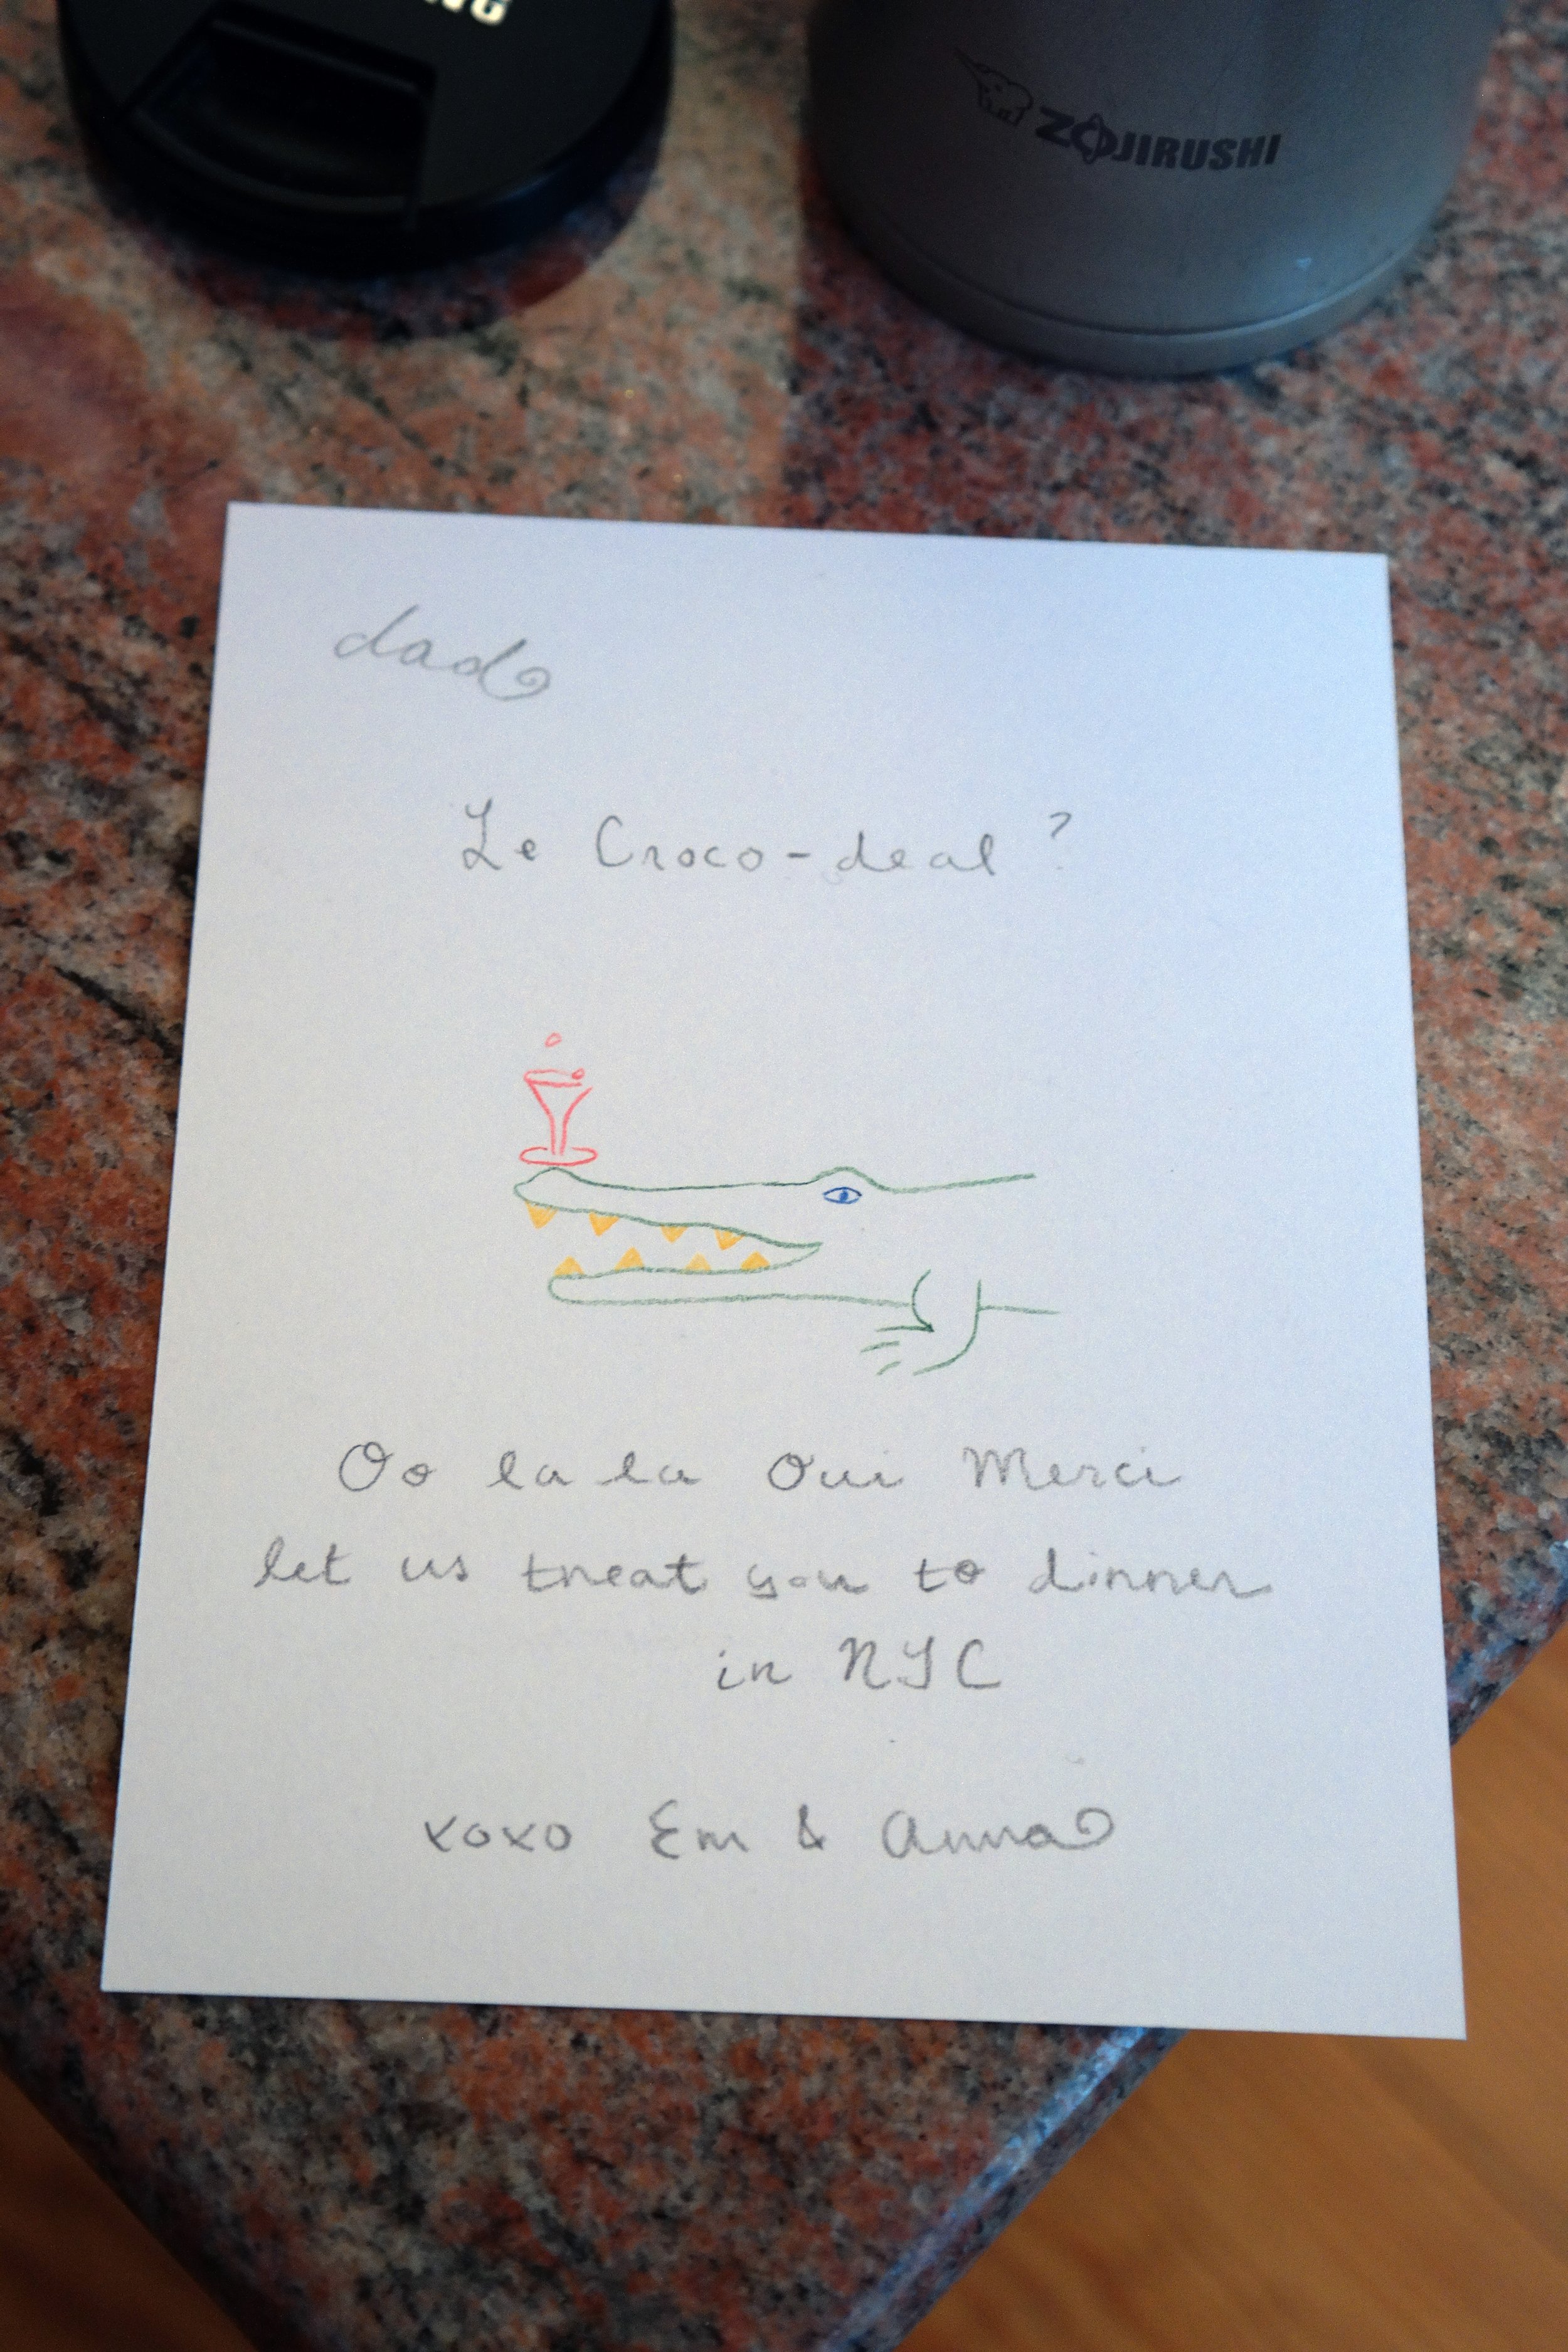 ZOJIRUSHI
dad
Le Croco-deal?
Oo la la Oui Merci
let us treat you to dinner
in NYC
xoxo Em & Anna